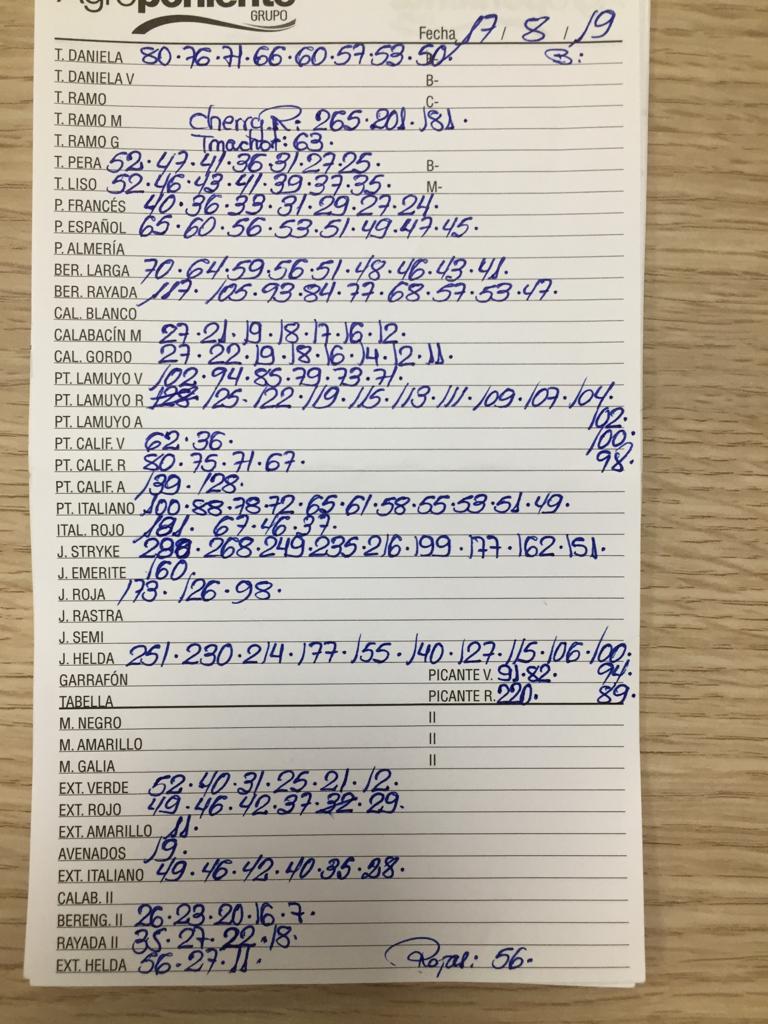 Agroponiente
GRUPO
Fecha 17 / 8 / 19
T. DANIELA 80·76·71·66·60·57·53·50· B:
T. DANIELA V B-
T. RAMO C-
T. RAMO M Cherry R: 265·201·181·
T. RAMO G Tmachot: 63·
T. PERA 52·47·41·36·31·27·25· B-
T. LISO 52·46·43·41·39·37·35· M-
P. FRANCÉS 40·36·33·31·29·27·24·
P. ESPAÑOL 65·60·56·53·51·49·47·45·
P. ALMERÍA
BER. LARGA 70·64·59·56·51·48·46·43·41·
BER. RAYADA 117·105·93·84·77·68·57·53·47·
CAL. BLANCO
CALABACÍN M 27·21·19·18·17·16·12·
CAL. GORDO 27·22·19·18·16·14·12·11·
PT. LAMUYO V 102·94·85·79·73·71·
PT. LAMUYO R 128·125·122·119·115·113·111·109·107·104·
PT. LAMUYO A 102·
PT. CALIF. V 62·36· 100·
PT. CALIF. R 80·75·71·67· 98·
PT. CALIF. A 139·128·
PT. ITALIANO 100·88·78·72·65·61·58·55·53·51·49·
ITAL. ROJO 181· 67·46·37·
J. STRYKE 268·249·235·216·199·177·162·151·
J. EMERITE 160·
J. ROJA 173·126·98·
J. RASTRA
J. SEMI
J. HELDA 251·230·214·177·155·140·127·115·106·100·
GARRAFÓN PICANTE V. 91·82· 94·
TABELLA PICANTE R. 220· 89·
M. NEGRO II
M. AMARILLO II
M. GALIA II
EXT. VERDE 52·40·31·25·21·12·
EXT. ROJO 49·46·42·37·32·29·
EXT. AMARILLO 11·
AVENADOS 19·
EXT. ITALIANO 49·46·42·40·35·28·
CALAB. II
BERENG. II 26·23·20·16·7·
RAYADA II 35·27·22·18·
EXT. HELDA 56·27·11· Rojas: 56·